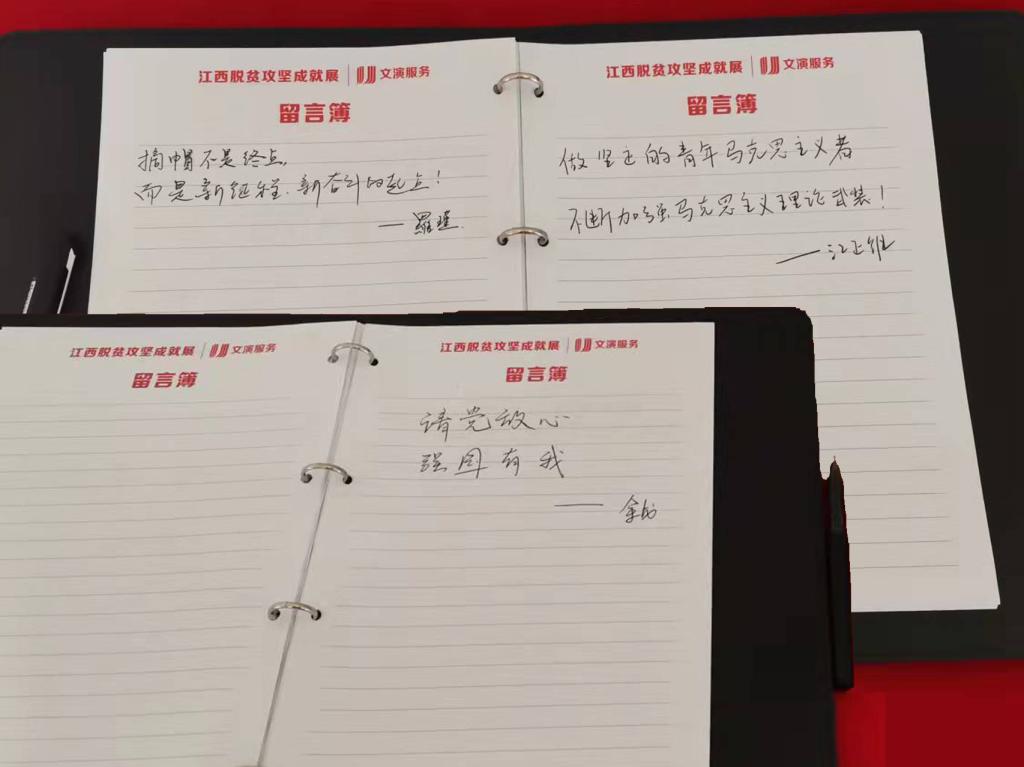 江西脱贫攻坚成就展 文演服务
留言簿
摘帽不是终点,
而是新征程、新奋斗的起点!
— 羅瑾.
江西脱贫攻坚成就展 文演服务
留言簿
做坚定的青年马克思主义者
不断加强马克思主义理论武装!
——江正维
江西脱贫攻坚成就展 文演服务
留言簿
江西脱贫攻坚成就展 文演服务
留言簿
请党放心
强国有我
——